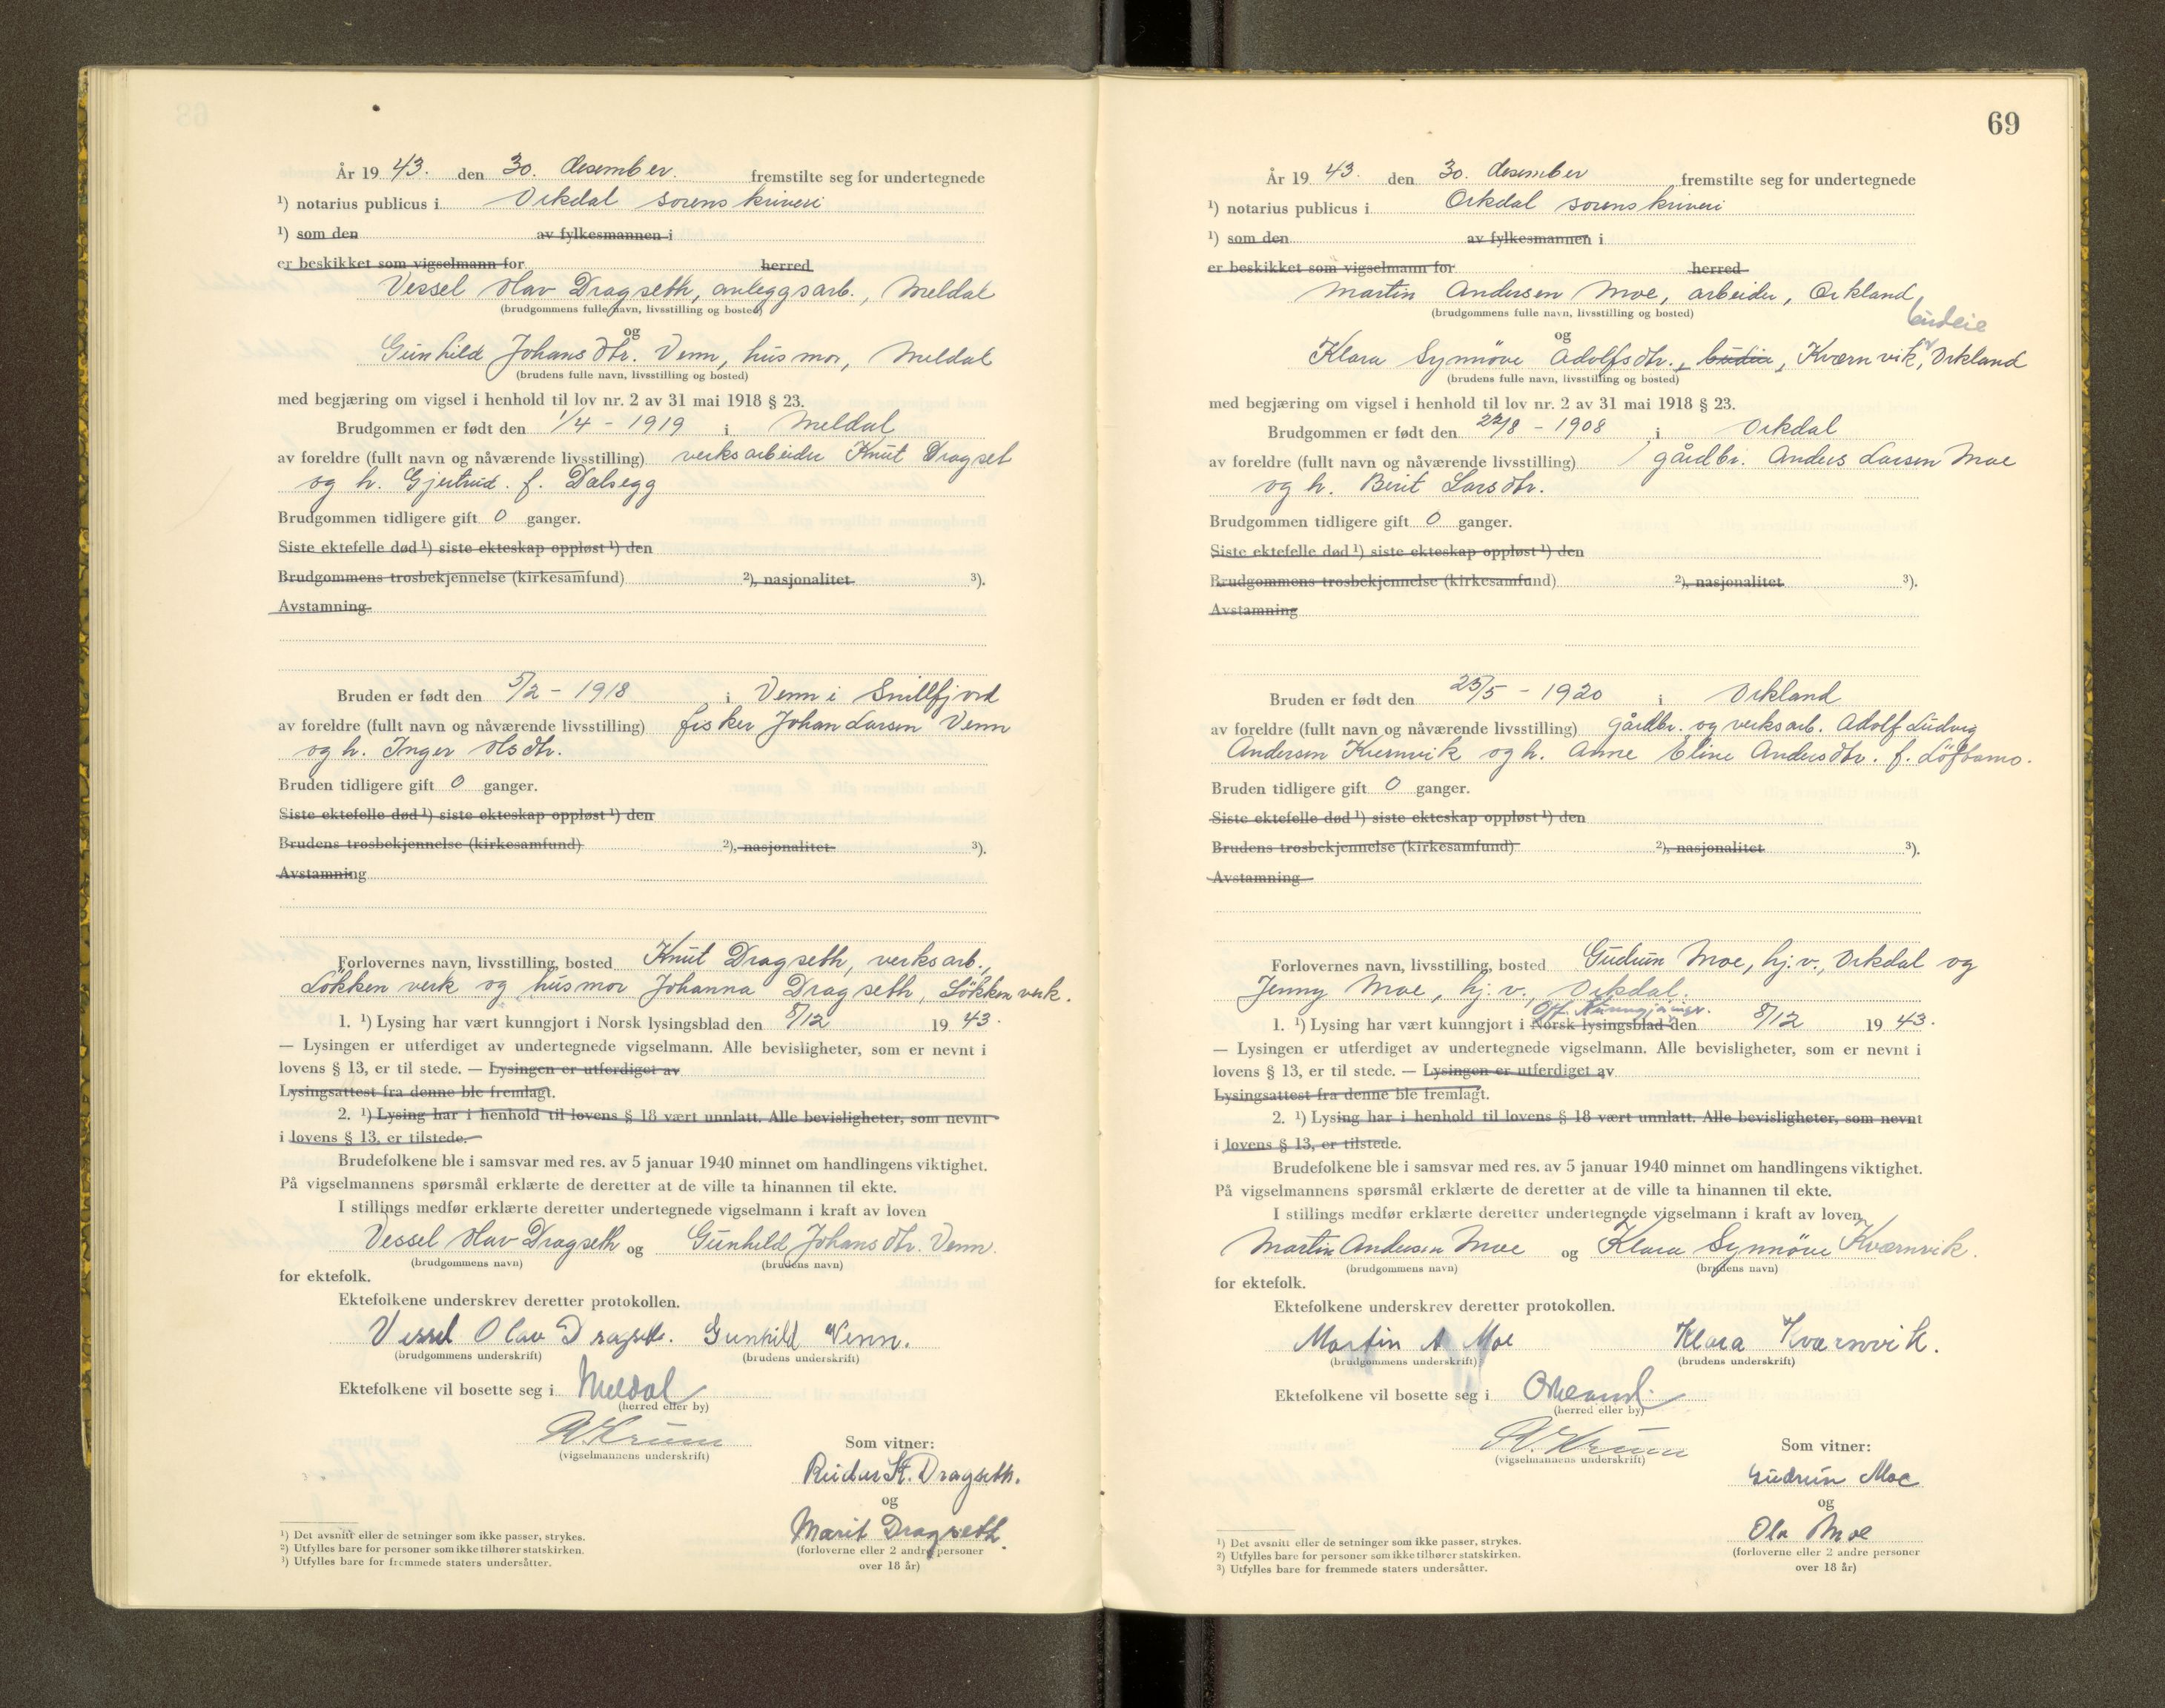 År 19 43. den 30. desember. fremstilte seg for undertegnede
¹) notarius publicus i Orkdal sorenskriveri
¹) som den av fylkesmannen i
er beskikket som vigselmann for herred
Vessel Olav Dragseth, anleggsarb., Meldal
(brudgommens fulle navn, livsstilling og bosted)
og
Gunhild Johansdtr. Venn, husmor, Meldal
(brudens fulle navn, livsstilling og bosted)
med begjæring om vigsel i henhold til lov nr. 2 av 31 mai 1918 § 23.
Brudgommen er født den 1/4 - 1919 i Meldal
av foreldre (fullt navn og nåværende livsstilling) verksarbeider Knut Dragset
og h. Gjertrud. f. Dalsegg
Brudgommen tidligere gift 0 ganger.
Siste ektefelle død ¹) siste ekteskap oppløst ¹) den
Brudgommens trosbekjennelse (kirkesamfund) ²), nasjonalitet ³).
Avstamning
Bruden er født den 5/2 - 1918 i Venn i Snillfjord
av foreldre (fullt navn og nåværende livsstilling) fisker Johan Larsen Venn
og h. Inger Olsdtr.
Bruden tidligere gift 0 ganger.
Siste ektefelle død ¹) siste ekteskap oppløst ¹) den
Brudens trosbekjennelse (kirkesamfund) ²), nasjonalitet ³).
Avstamning
Forlovernes navn, livsstilling, bosted Knut Dragseth, verksarb.,
Løkken verk og husmor Johanna Dragseth, Løkken verk.
1. ¹) Lysing har vært kunngjort i Norsk lysingsblad den 8/12 19 43.
— Lysingen er utferdiget av undertegnede vigselmann. Alle bevisligheter, som er nevnt i
lovens § 13, er til stede. — Lysingen er utferdiget av
Lysingsattest fra denne ble fremlagt.
2. ¹) Lysing har i henhold til lovens § 18 vært unnlatt. Alle bevisligheter, som nevnt
i lovens § 13, er tilstede.
Brudefolkene ble i samsvar med res. av 5 januar 1940 minnet om handlingens viktighet.
På vigselmannens spørsmål erklærte de deretter at de ville ta hinannen til ekte.
I stillings medfør erklærte deretter undertegnede vigselmann i kraft av loven
Vessel Olav Dragseth og Gunhild Johansdtr. Venn.
(brudgommens navn) (brudens navn)
for ektefolk.
Ektefolkene underskrev deretter protokollen.
Vessel Olav Dragset. Gunhild Venn.
(brudgommens underskrift) (brudens underskrift)
Ektefolkene vil bosette seg i Meldal
(herred eller by)
(vigselmannens underskrift)
Som vitner:
Reidar K. Dragseth.
og
Marit Dragseth.
(forloverne eller 2 andre personer
over 18 år)
¹) Det avsnitt eller de setninger som ikke passer, strykes.
²) Utfylles bare for personer som ikke tilhører statskirken.
³) Utfylles bare for fremmede staters undersåtter.
69
År 19 43. den 30. desember fremstilte seg for undertegnede
¹) notarius publicus i Orkdal sorenskriveri
¹) som den av fylkesmannen i
er beskikket som vigselmann for herred
Martin Andersen Moe, arbeider, Orkland
(brudgommens fulle navn, livsstilling og bosted)
budeie
og
Klara Synnöve Adolfsdtr., budeie, Kværnvik, Orkland
(brudens fulle navn, livsstilling og bosted)
med begjæring om vigsel i henhold til lov nr. 2 av 31 mai 1918 § 23.
Brudgommen er født den 22/8 - 1908 i Orkdal
av foreldre (fullt navn og nåværende livsstilling) gårdbr. Anders Larsen Moe
og h. Berit Larsdtr.
Brudgommen tidligere gift 0 ganger.
Siste ektefelle død ¹) siste ekteskap oppløst ¹) den
Brudgommens trosbekjennelse (kirkesamfund) ²), nasjonalitet ³).
Avstamning
Bruden er født den 25/5 - 1920 i Orkland
av foreldre (fullt navn og nåværende livsstilling) gårdbr. og verksarb. Adolf Ludvig
Andersen Kvernvik og h. Anne Eline Andersdtr. f.
Bruden tidligere gift 0 ganger.
Siste ektefelle død ¹) siste ekteskap oppløst ¹) den
Brudens trosbekjennelse (kirkesamfund) ²), nasjonalitet ³).
Avstamning
Forlovernes navn, livsstilling, bosted Gudrun Moe, hj.v., Orkdal og
Jenny Moe, hj.v., Orkdal.
Off. Kunngjøringer.
1. ¹) Lysing har vært kunngjort i Norsk lysingsblad den 8/12 19 43.
— Lysingen er utferdiget av undertegnede vigselmann. Alle bevisligheter, som er nevnt i
lovens § 13, er til stede. — Lysingen er utferdiget av
Lysingsattest fra denne ble fremlagt.
2. ¹) Lysing har i henhold til lovens § 18 vært unnlatt. Alle bevisligheter, som nevnt
i lovens § 13, er tilstede.
Brudefolkene ble i samsvar med res. av 5 januar 1940 minnet om handlingens viktighet.
På vigselmannens spørsmål erklærte de deretter at de ville ta hinannen til ekte.
I stillings medfør erklærte deretter undertegnede vigselmann i kraft av loven
Martin Andersen Moe og Klara Synnöve Kværnvik.
(brudgommens navn) (brudens navn)
for ektefolk.
Ektefolkene underskrev deretter protokollen.
Martin A Moe Klara Kværnvik.
(brudgommens underskrift) (brudens underskrift)
Ektefolkene vil bosette seg i Orkland.
(herred eller by)
(vigselmannens underskrift)
Som vitner:
Gudrun Moe
og
Ola Moe
(forloverne eller 2 andre personer
over 18 år)
¹) Det avsnitt eller de setninger som ikke passer, strykes.
²) Utfylles bare for personer som ikke tilhører statskirken.
³) Utfylles bare for fremmede staters undersåtter.